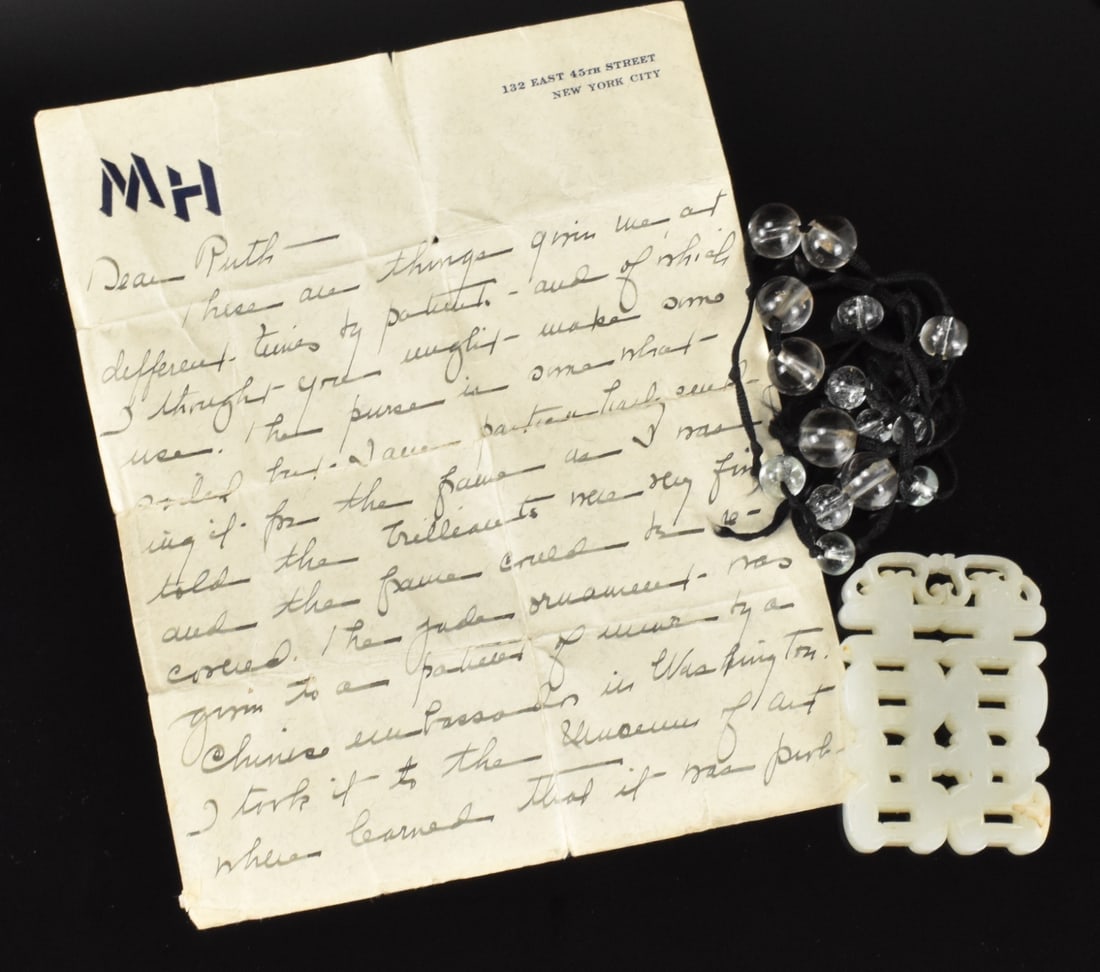 132 EAST 45TH STREET
NEW YORK CITY
MH
Dear Ruth —
These are things given me, at
different times by patients - and of which
I thought you might make some
use. The purse is somewhat
soiled but I am particularly send-
ing it for the frame as I was
told the brilliants were very fin
and the frame could be re-
covered. The jade ornament was
given to a patient of mine by a
Chinese embassador in Washington.
I took it to the Museum of Art
where learned that it was prob-